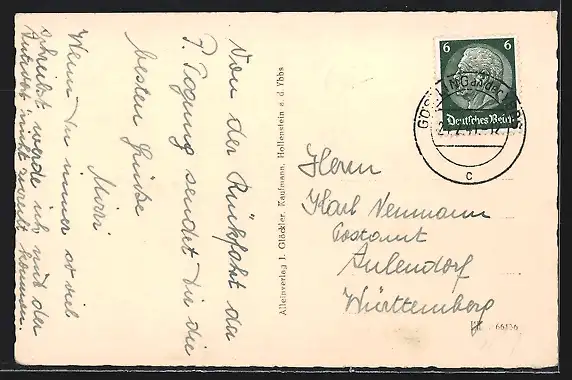 Von der Rückfahrt da
P. Tagung sendet Dir die
besten Grüße
Mizzi
Wenn Du immer so viel
schreibst werde ich mit der
Antwort nicht zurecht kommen.
Alleinverlag J. Glöckler, Kaufmann, Hollenstein a. d. Ybbs
6 6
Deutsches Reich
GÖSTLING an der
c
Herrn
Karl Neumann
Postamt
Aulendorf
Württemberg
66136